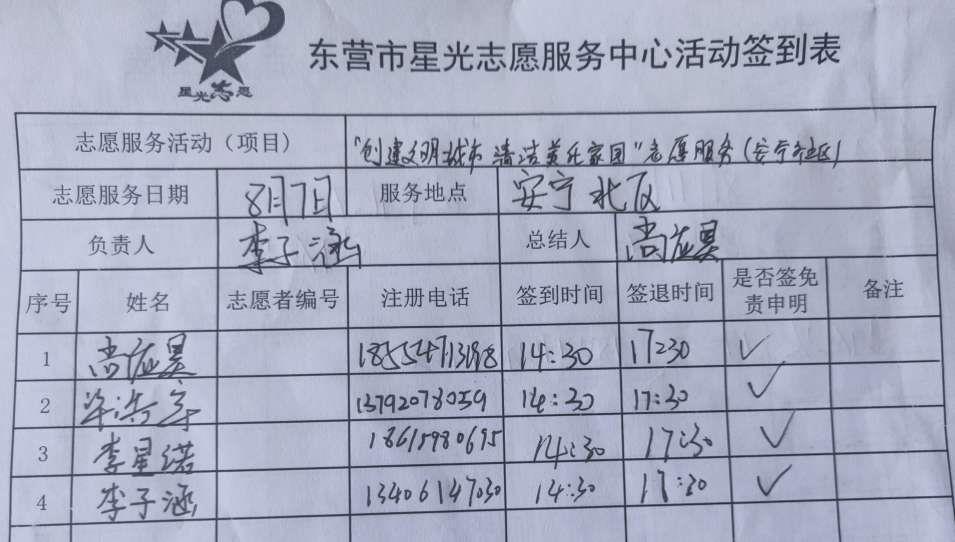 星光志愿
东营市星光志愿服务中心活动签到表
志愿服务活动（项目） "创建文明城市 清洁美化家园"志愿服务（安宁社区）
志愿服务日期 8月7日 服务地点 安宁北区
负责人 李子涵 总结人 尚应昊
序号 姓名 志愿者编号 注册电话 签到时间 签退时间 是否签免责申明 备注
1 尚应昊 14:30 17:30 ✓
2 13792078059 14:30 17:30 ✓
3 李星诺 18615980695 14:30 17:30 ✓
4 李子涵 13406147030 14:30 17:30 ✓